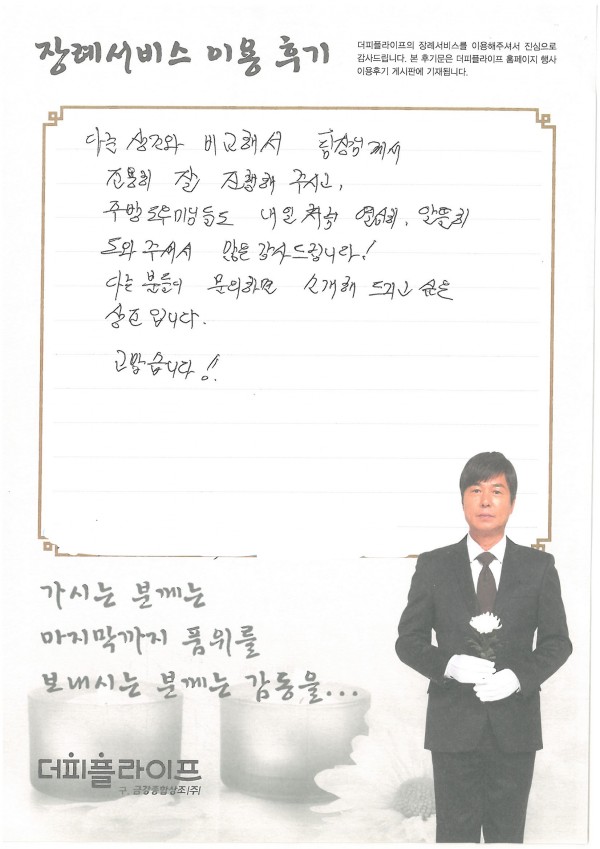 장례서비스 이용 후기
더피플라이프의 장례서비스를 이용해주셔서 진심으로
감사드립니다. 본 후기문은 더피플라이프 홈페이지 행사
이용후기 게시판에 기재됩니다.
다른 상조와 비교해서 팀장님께서
진행해 주시고,
주방 도우미님들도 내일처럼 열심히, 알뜰히
도와 주셔서 많은 감사드립니다!
다른 분들이 문의하면 소개해 드리고 싶은
상조입니다.
고맙습니다!!
가시는 분께는
마지막까지 품위를
보내시는 분께는 감동을...
더피플라이프
구. 금강종합상조(주)